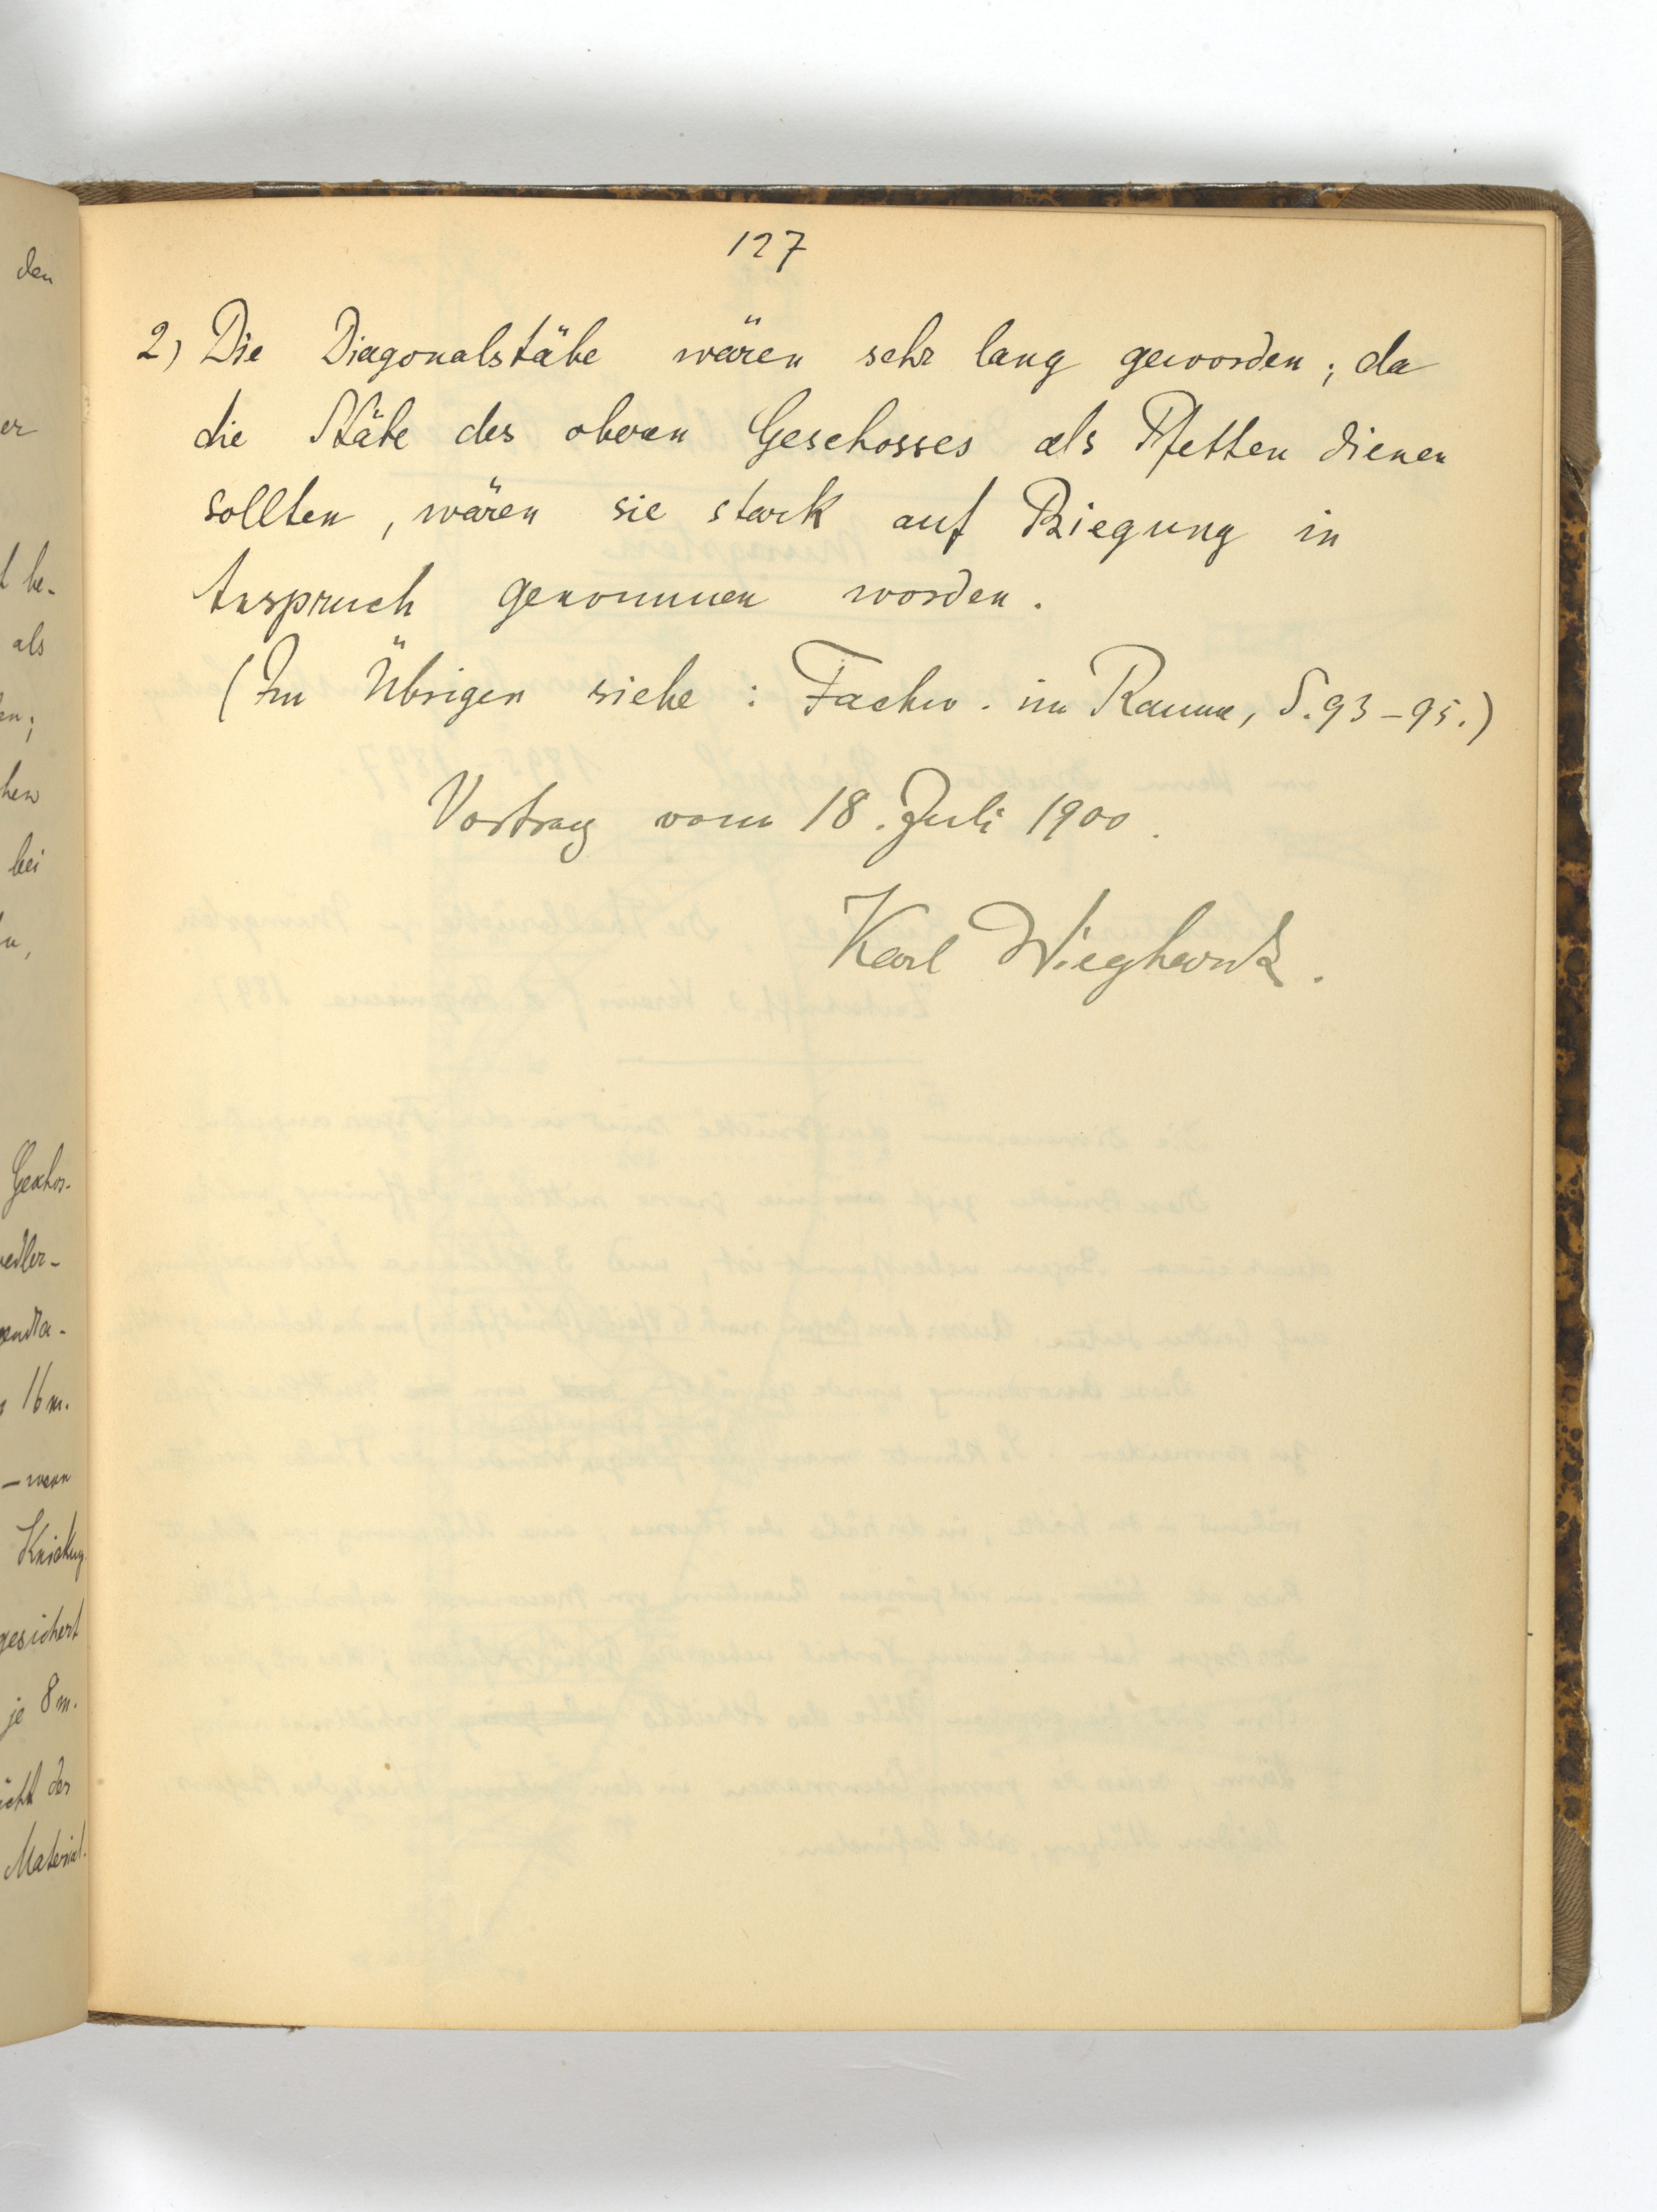 den
er
be-
als
en;
hen
bei
Geschos-
edler-
16 m.
– wenn
Knickung
gesichert
je 8 m.
icht des
Material.
127
2) Die Diagonalstäbe wären sehr lang geworden; da
die Stäbe des oberen Geschosses als Pfetten dienen
sollten, wären sie stark auf Biegung in
Anspruch genommen worden.
(Im Übrigen siehe: Fachw. im Raume, S. 93–95.)
Vortrag vom 18. Juli 1900.
Karl Wieghardt.